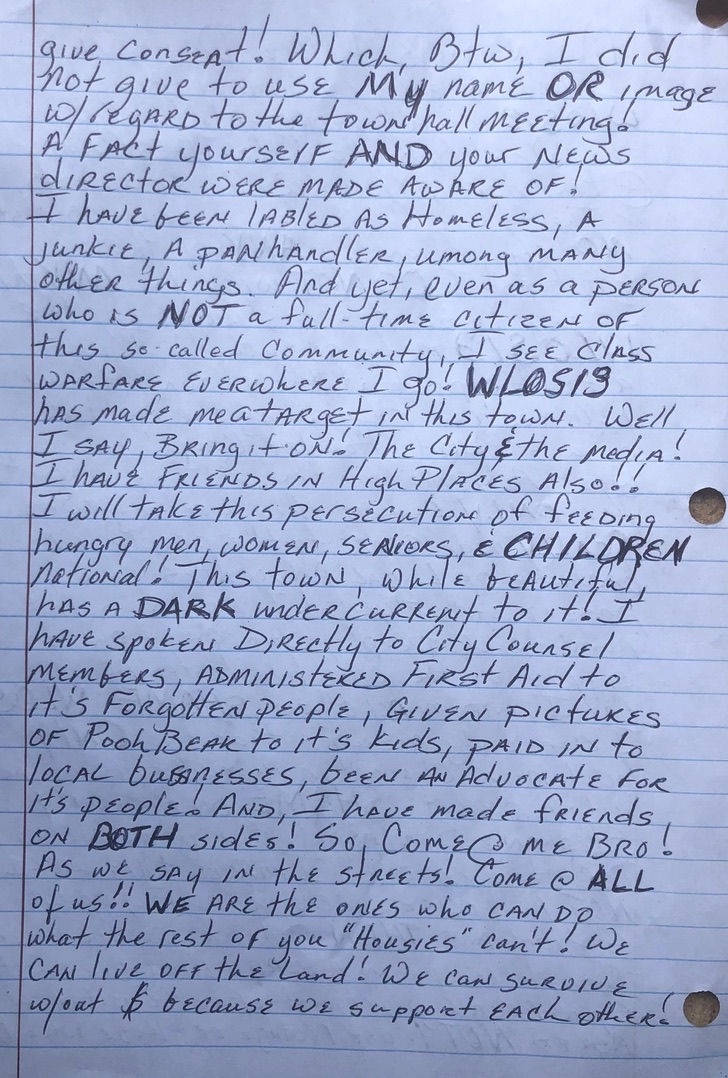 give consent! Which, Btw, I did
not give to use My name OR image
w/regard to the town hall meeting!
A fact yourself AND your News
director were made aware of!
I have been labled as Homeless, A
junkie, A panhandler, umong many
other things. And yet, even as a person
who is NOT a full-time citizen of
this so-called Community, I see Class
warfare everwhere I go! WLOS13
has made me a target in this town. Well
I say, Bring it on! The City & the media!
I have Friends in High Places Also!!
I will take this persecution of feeding
hungry men, women, seniors, & CHILDREN
national! This town, while beautiful,
has a DARK undercurrent to it! I
have spoken Directly to City Counsel
members, administered First Aid to
it's Forgotten people, given pictures
of Pooh Bear to it's kids, paid in to
local businesses, been an Advocate for
it's people! And, I have made friends
on BOTH sides! So, Come @ me Bro!
As we say in the streets! Come @ ALL
of us!! WE are the ones who can do
what the rest of you "Housies" can't! We
can live off the Land! We can survive
w/out $ because we support each other!